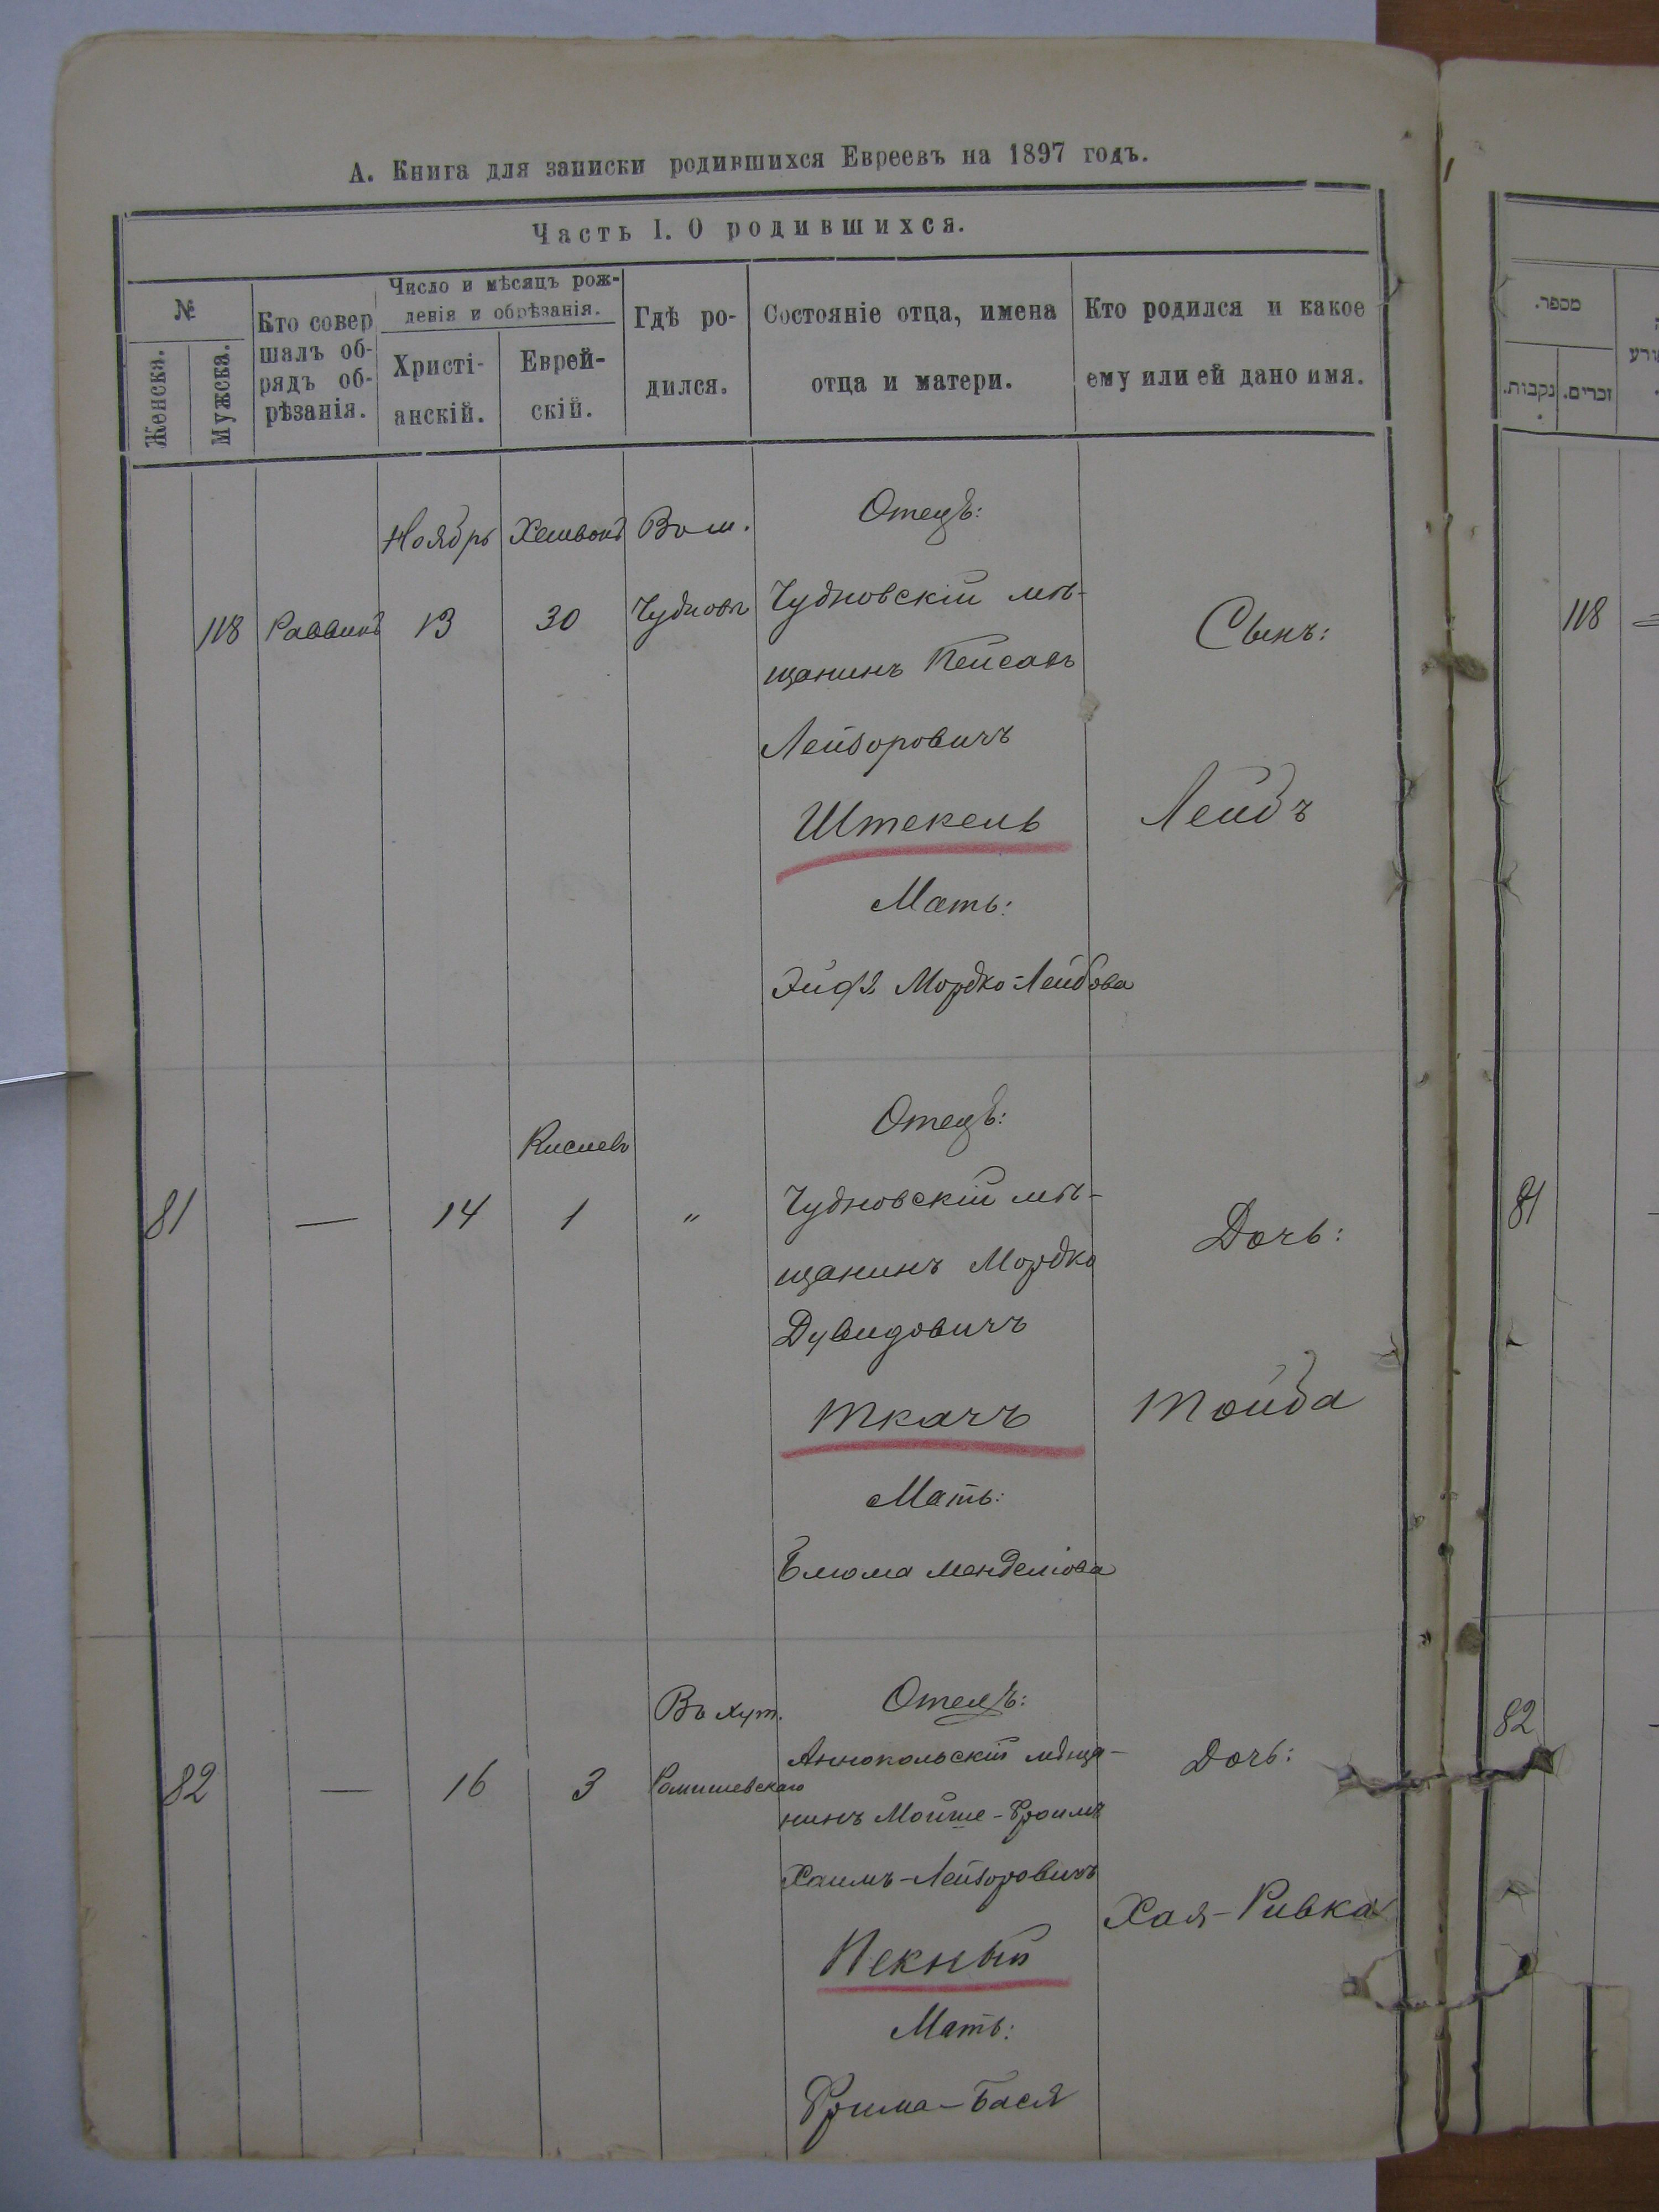 А. Книга для записки родившихся Евреевъ на 1897 годъ.
Часть I. О родившихся.
№
Женска.
Мужска.
Кто совер
шалъ об-
рядъ об-
рѣзанія.
Число и мѣсяцъ рож-
денія и обрѣзанія.
Христі-
анскій.
Еврей-
скій.
Гдѣ ро-
дился.
Состояніе отца, имена
отца и матери.
Кто родился и какое
ему или ей дано имя.
מספר.
נקבות.
זכרים.
118
Раввинъ
Ноябрь
13
30
Въ м.
Чудновъ
Отецъ:
Чудновскій мѣ-
щанинъ Пейсахъ
Лейзоровичъ
Штекель
Мать:
Мордко-Лейбова
Сынъ:
Лейбъ
118
81
—
14
Кислевъ
1
"
Отецъ:
Чудновскій мѣ-
щанинъ Мордко
Дувидовичъ
Ткачъ
Мать:
Блюма Менделіова
Дочь:
Тойба
81
82
—
16
3
Въ хут.
Отецъ:
Аннопольскій мѣща-
нинъ Мойше-Фроимъ
Хаимъ-Лейзоровичъ
Пекный
Мать:
Фрима-Бася
Дочь:
Хая-Ривка
82